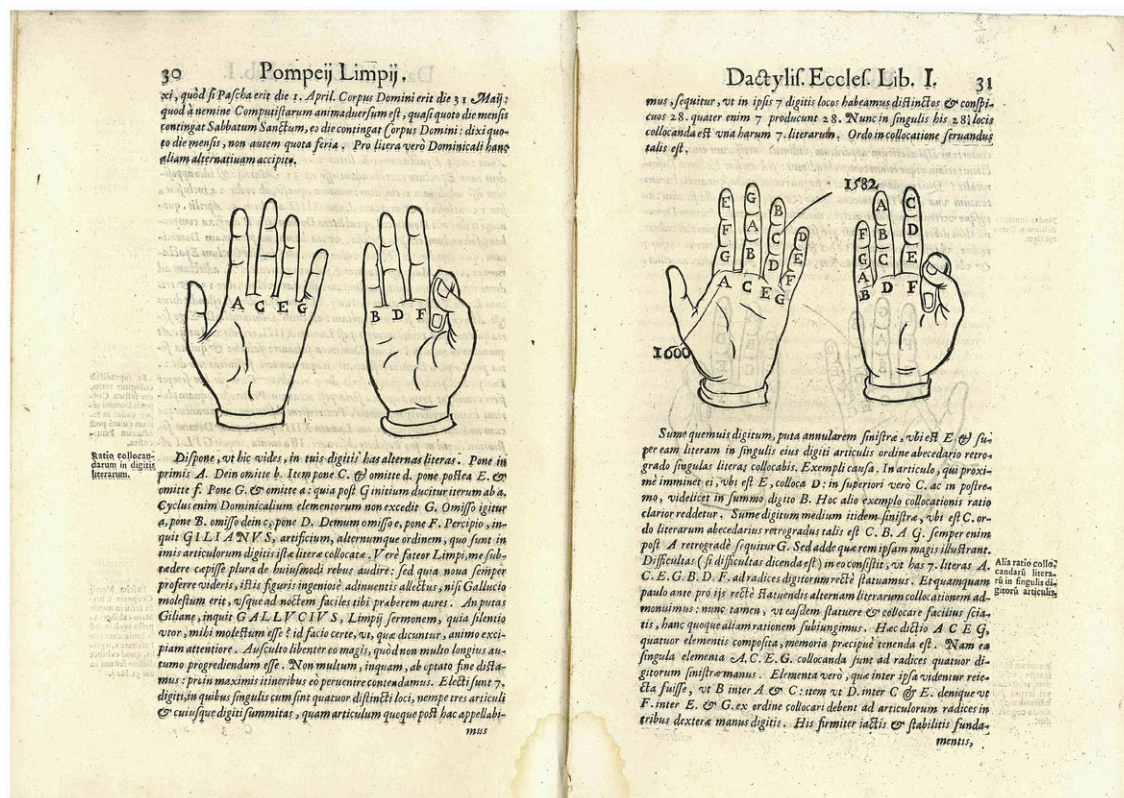 30 Pompeij Limpij.
xi, quòd si Pascha erit die 1. April. Corpus Domini erit die 31 Maij:
quòd à nemine Computistarum animaduersum est, quasi quoto die mensis
contingat Sabbatum Sanctum, eo die contingat Corpus Domini: dixi quo-
to die mensis, non autem quota feria. Pro litera verò Dominicali hanc
aliam alternatiuam accipito.
A C E G
B D F
Ratio collocan-
darum in digitis
literarum.
Dispone, vt hic vides, in tuis digitis has alternas literas. Pone in
primis A. Dein omitte b. Item pone C. & omitte d. pone postea E. &
omitte f. Pone G. & omitte a: quia post G initium ducitur iterum ab a.
Cyclus enim Dominicalium elementorum non excedit G. Omisso igitur
a, pone B. omisso dein c, pone D. Demum omisso e, pone F. Percipio, in-
quit GILIANVS, artificium, alternumque ordinem, quo sunt in
imis articulorum digitis istæ literæ collocatæ. Verè fateor Limpi, me sub-
tædere cæpisse plura de huiusmodi rebus audire: sed quia noua semper
proferre videris, istis figuris ingeniosè adinuentis allectus, nisi Gallucio
molestum erit, vsque ad noctem faciles tibi præberem aures. An putas
Giliane, inquit GALLVCIVS, Limpij sermonem, quia silentio
vtor, mihi molestum esse? id facio certe, vt, quæ dicuntur, animo exci-
piam attentiore. Ausculto libenter eo magis, quòd non multo longius au-
tumo progrediendum esse. Non multum, inquam, ab optato fine dista-
mus: proin maximis itineribus eò peruenire contendamus. Electi sunt 7.
digiti, in quibus singulis cum sint quatuor distincti loci, nempe tres articuli
& cuiusque digiti summitas, quam articulum quoque post hac appellabi-
mus
Dactylis. Eccles. Lib. I. 31
mus, sequitur, vt in ipsis 7 digitis locos habeamus distinctos & conspi-
cuos 28. quater enim 7 producunt 28. Nunc in singulis his 28 locis
collocanda est vna harum 7. literarum. Ordo in collocatione seruandus
talis est.
1582
E G B D
F A C E
G B D F
A C E G
F A C
G B D
A C E
B D F
1600
Sume quemuis digitum, puta annularem sinistræ, vbi est E & su-
per eam literam in singulis eius digiti articulis ordine abecedario retro-
grado singulas literas collocabis. Exempli causa. In articulo, qui proxi-
mè imminet ei, vbi est E, colloca D: in superiori verò C. ac in postre-
mo, videlicet in summo digito B. Hoc alio exemplo collocationis ratio
clarior reddetur. Sume digitum medium itidem sinistræ, vbi est C. or-
do literarum abecedarius retrogradus talis est C. B. A G. semper enim
post A retrogradè sequitur G. Sed adde quæ rem ipsam magis illustrant.
Difficultas (si difficultas dicenda est) in eo consistit, vt has 7. literas A.
C. E. G. B. D. F. ad radices digitorum rectè statuamus. Et quamquam
paulo ante pro ijs rectè statuendis alternam literarum collocationem ad-
monuimus: nunc tamen, vt easdem statuere & collocare facilius scia-
tis, hanc quoque aliam rationem subiungimus. Hæc dictio A C E G,
quatuor elementis composita, memoria præcipuè tenenda est. Nam ea
singula elementa A. C. E. G. collocanda sunt ad radices quatuor di-
gitorum sinistræ manus. Elementa verò, quæ inter ipsa videntur reie-
cta fuisse, vt B inter A & C: item vt D. inter C & E. denique vt
F. inter E. & G. ex ordine collocari debent ad articulorum radices in
tribus dexteræ manus digitis. His firmiter iactis & stabilitis funda-
mentis,
Alia ratio collo-
candarū litera-
rū in singulis di-
gitorū articulis.